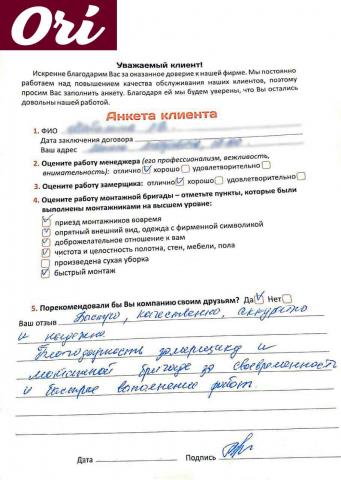 Ori
Уважаемый клиент!
Искренне благодарим Вас за оказанное доверие к нашей фирме. Мы постоянно
работаем над повышением качества обслуживания наших клиентов, поэтому
просим Вас заполнить анкету. Благодаря ей мы будем уверены, что Вы остались
довольны нашей работой.
Анкета клиента
1. ФИО
Дата заключения договора
Ваш адрес
2. Оцените работу менеджера (его профессионализм, вежливость,
внимательность): отлично хорошо удовлетворительно
3. Оцените работу замерщика: отлично хорошо удовлетворительно
4. Оцените работу монтажной бригады – отметьте пункты, которые были
выполнены монтажниками на высшем уровне:
приезд монтажников вовремя
опрятный внешний вид, одежда с фирменной символикой
доброжелательное отношение к вам
чистота и целостность полотна, стен, мебели, пола
произведена сухая уборка
быстрый монтаж
5. Порекомендовали бы Вы компанию своим друзьям? Да Нет
Ваш отзыв Быстро, качественно, аккуратно
и надежно.
Благодарность замерщику и
монтажной бригаде за своевременность
и быстрое выполнение работ.
Дата Подпись